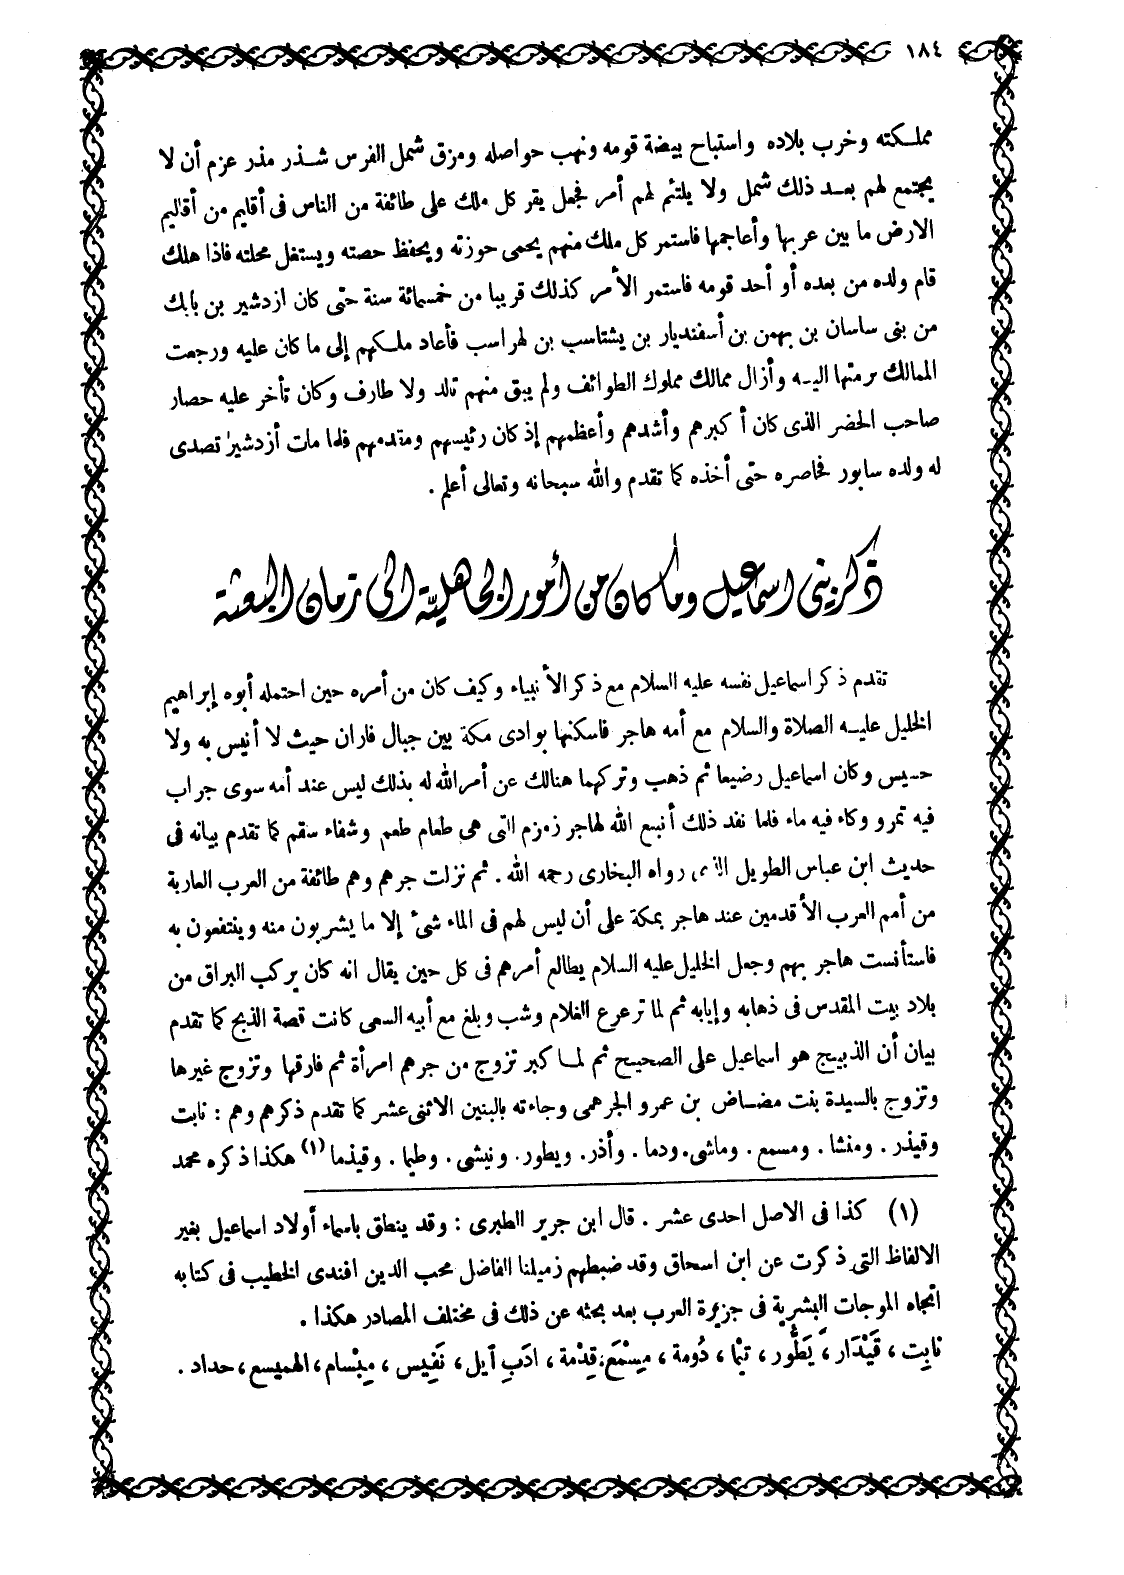 ١٨٤
مملكته وخرب بلاده واستباح بيضة قومه ونهب حواصله ومزق شمل الفرس شذر مذر عزم أن لا
يجتمع لهم بعد ذلك شمل ولا يلتئم لهم أمر فجعل يقر كل ملك على طائفة من الناس فى أقليم من أقاليم
الارض ما بين عربها وأعاجمها فاستمر كل ملك منهم يحمى حوزته ويحفظ حصته ويستغل محلته فاذا هلك
قام ولده من بعده أو أحد قومه فاستمر الأمر كذلك قريبا من خمسمائة سنة حتى كان ازدشير بن بابك
من بنى ساسان بن بهمن بن أسفنديار بن يشتاسب بن لهراسب فأعاد ملكهم إلى ما كان عليه ورجعت
الممالك برمتها اليه وأزال ممالك مملوك الطوائف ولم يبق منهم تالد ولا طارف وكان تأخر عليه حصار
صاحب الحضر الذى كان أكبرهم وأشدهم وأعظمهم إذ كان رئيسهم ومقدمهم فلما مات أزدشير تصدى
له ولده سابور فحاصره حتى أخذه كما تقدم والله سبحانه وتعالى أعلم .
ذكر بنى اسماعيل وما كان من أمور الجاهلية الى زمان البعثة
تقدم ذكر اسماعيل نفسه عليه السلام مع ذكر الأنبياء وكيف كان من أمره حين احتمله أبوه إبراهيم
الخليل عليه الصلاة والسلام مع أمه هاجر فاسكنها بوادى مكة بين جبال فاران حيث لا أنيس به ولا
حسيس وكان اسماعيل رضيعا ثم ذهب وتركهما هنالك عن أمر الله له بذلك ليس عند أمه سوى جراب
فيه تمر ووكاء فيه ماء فلما نفد ذلك أنبع الله لهاجر زمزم التى هى طعام طعم وشفاء سقم كما تقدم بيانه فى
حديث ابن عباس الطويل الذى رواه البخارى رحمه الله . ثم نزلت جرهم وهم طائفة من العرب العاربة
من أمم العرب الأقدمين عند هاجر بمكة على أن ليس لهم فى الماء شئ إلا ما يشربون منه وينتفعون به
فاستأنست هاجر بهم وجعل الخليل عليه السلام يطالع أمرهم فى كل حين يقال انه كان يركب البراق من
بلاد بيت المقدس فى ذهابه وإيابه ثم لما ترعرع الغلام وشب وبلغ مع أبيه السعى كانت قصة الذبح كما تقدم
بيان أن الذبيح هو اسماعيل على الصحيح ثم لما كبر تزوج من جرهم امرأة ثم فارقها وتزوج غيرها
وتزوج بالسيدة بنت مضاض بن عمرو الجرهمى وجاءته بالبنين الاثنى عشر كما تقدم ذكرهم وهم : نابت
وقيذر . ومنشا . ومسمع . وماشى . ودما . وأذر . ويطور . ونبشى . وطيما . وقيذما (١) هكذا ذكره محمد
(١) كذا فى الاصل احدى عشر . قال ابن جرير الطبرى : وقد ينطق باسماء أولاد اسماعيل بغير
الالفاظ التى ذكرت عن ابن اسحاق وقد ضبطهم زميلنا الفاضل محب الدين افندى الخطيب فى كتابه
اتجاه الموجات البشرية فى جزيرة العرب بعد بحثه عن ذلك فى مختلف المصادر هكذا .
نابِت ، قَيْدَار ، يَطُّور ، تيْما ، دُومة ، مِسْمَع ، قِدْمة ، ادَبِ آيل ، نَفِيس ، مِبْسام ، الهميسع ، حداد .